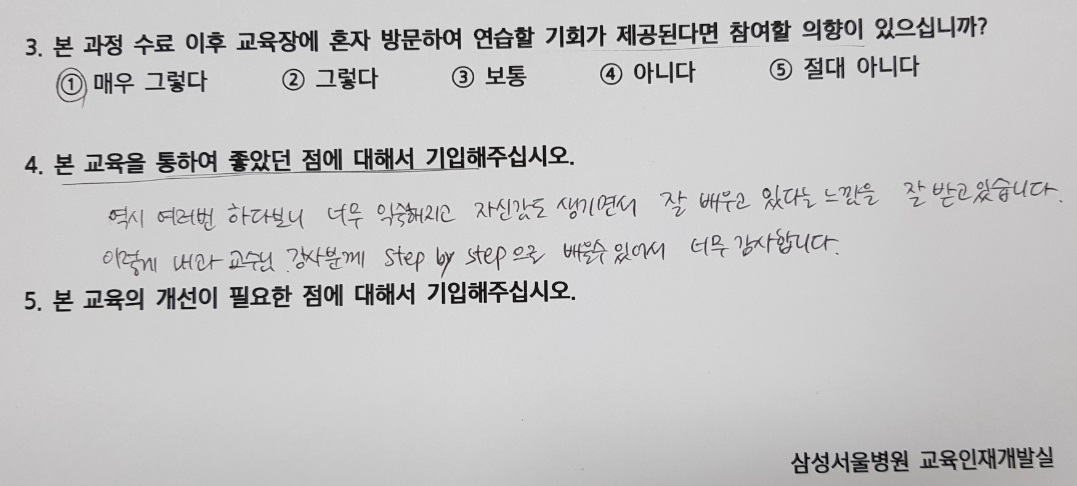 3. 본 과정 수료 이후 교육장에 혼자 방문하여 연습할 기회가 제공된다면 참여할 의향이 있으십니까?
① 매우 그렇다 ② 그렇다 ③ 보통 ④ 아니다 ⑤ 절대 아니다
4. 본 교육을 통하여 좋았던 점에 대해서 기입해주십시오.
역시 여러번 하다보니 너무 익숙해지고 자신감도 생기면서 잘 배우고 있다는 느낌을 잘 받고있습니다.
이렇게 내과 교수님 강사분께 step by step으로 배울수 있어서 너무 감사합니다.
5. 본 교육의 개선이 필요한 점에 대해서 기입해주십시오.
삼성서울병원 교육인재개발실